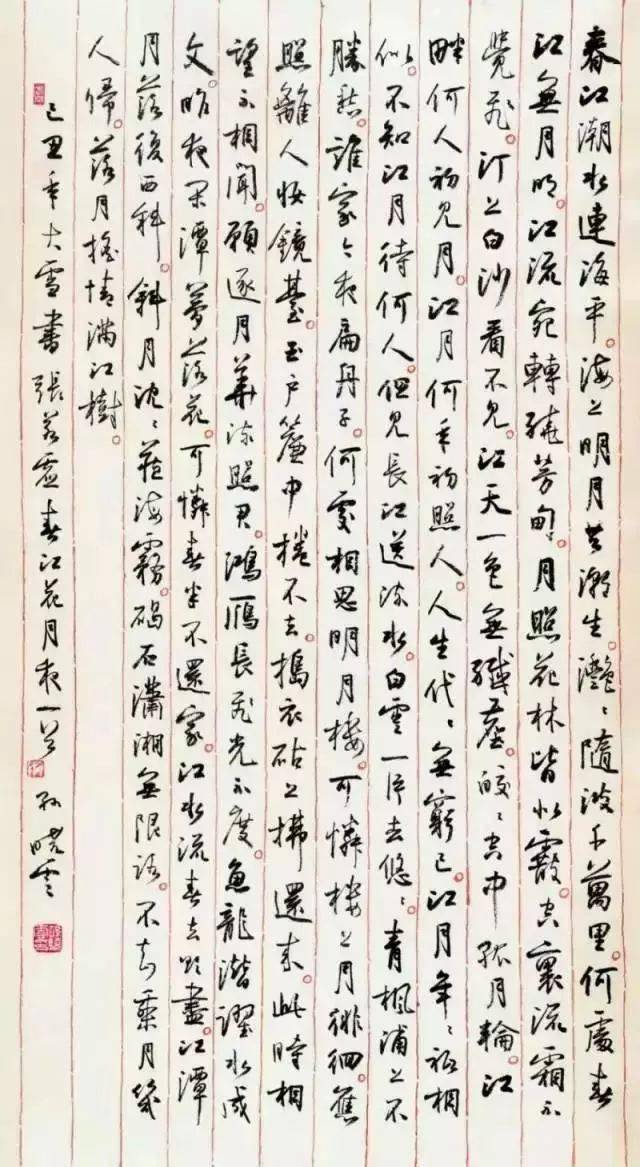 春江潮水連海平。海上明月共潮生。灩々隨波千萬里。何處春
江無月明。江流宛轉繞芳甸。月照花林皆似霰。空裏流霜不
覺飛。汀上白沙看不見。江天一色無纖塵。皎々空中孤月輪。江
畔何人初見月。江月何年初照人。人生代々無窮已。江月年々祗相
似。不知江月待何人。但見長江送流水。白雲一片去悠々。青楓浦上不
勝愁。誰家今夜扁舟子。何處相思明月樓。可憐樓上月徘徊。應
照離人妝鏡臺。玉戶簾中捲不去。搗衣砧上拂還來。此時相
望不相聞。願逐月華流照君。鴻雁長飛光不度。魚龍潛躍水成
文。昨夜閑潭夢落花。可憐春半不還家。江水流春去欲盡。江潭
月落復西斜。斜月沉々藏海霧。碣石瀟湘無限路。不知乘月幾
人歸。落月搖情滿江樹。
己丑年大雪書張若虛春江花月夜一首 孫曉雲